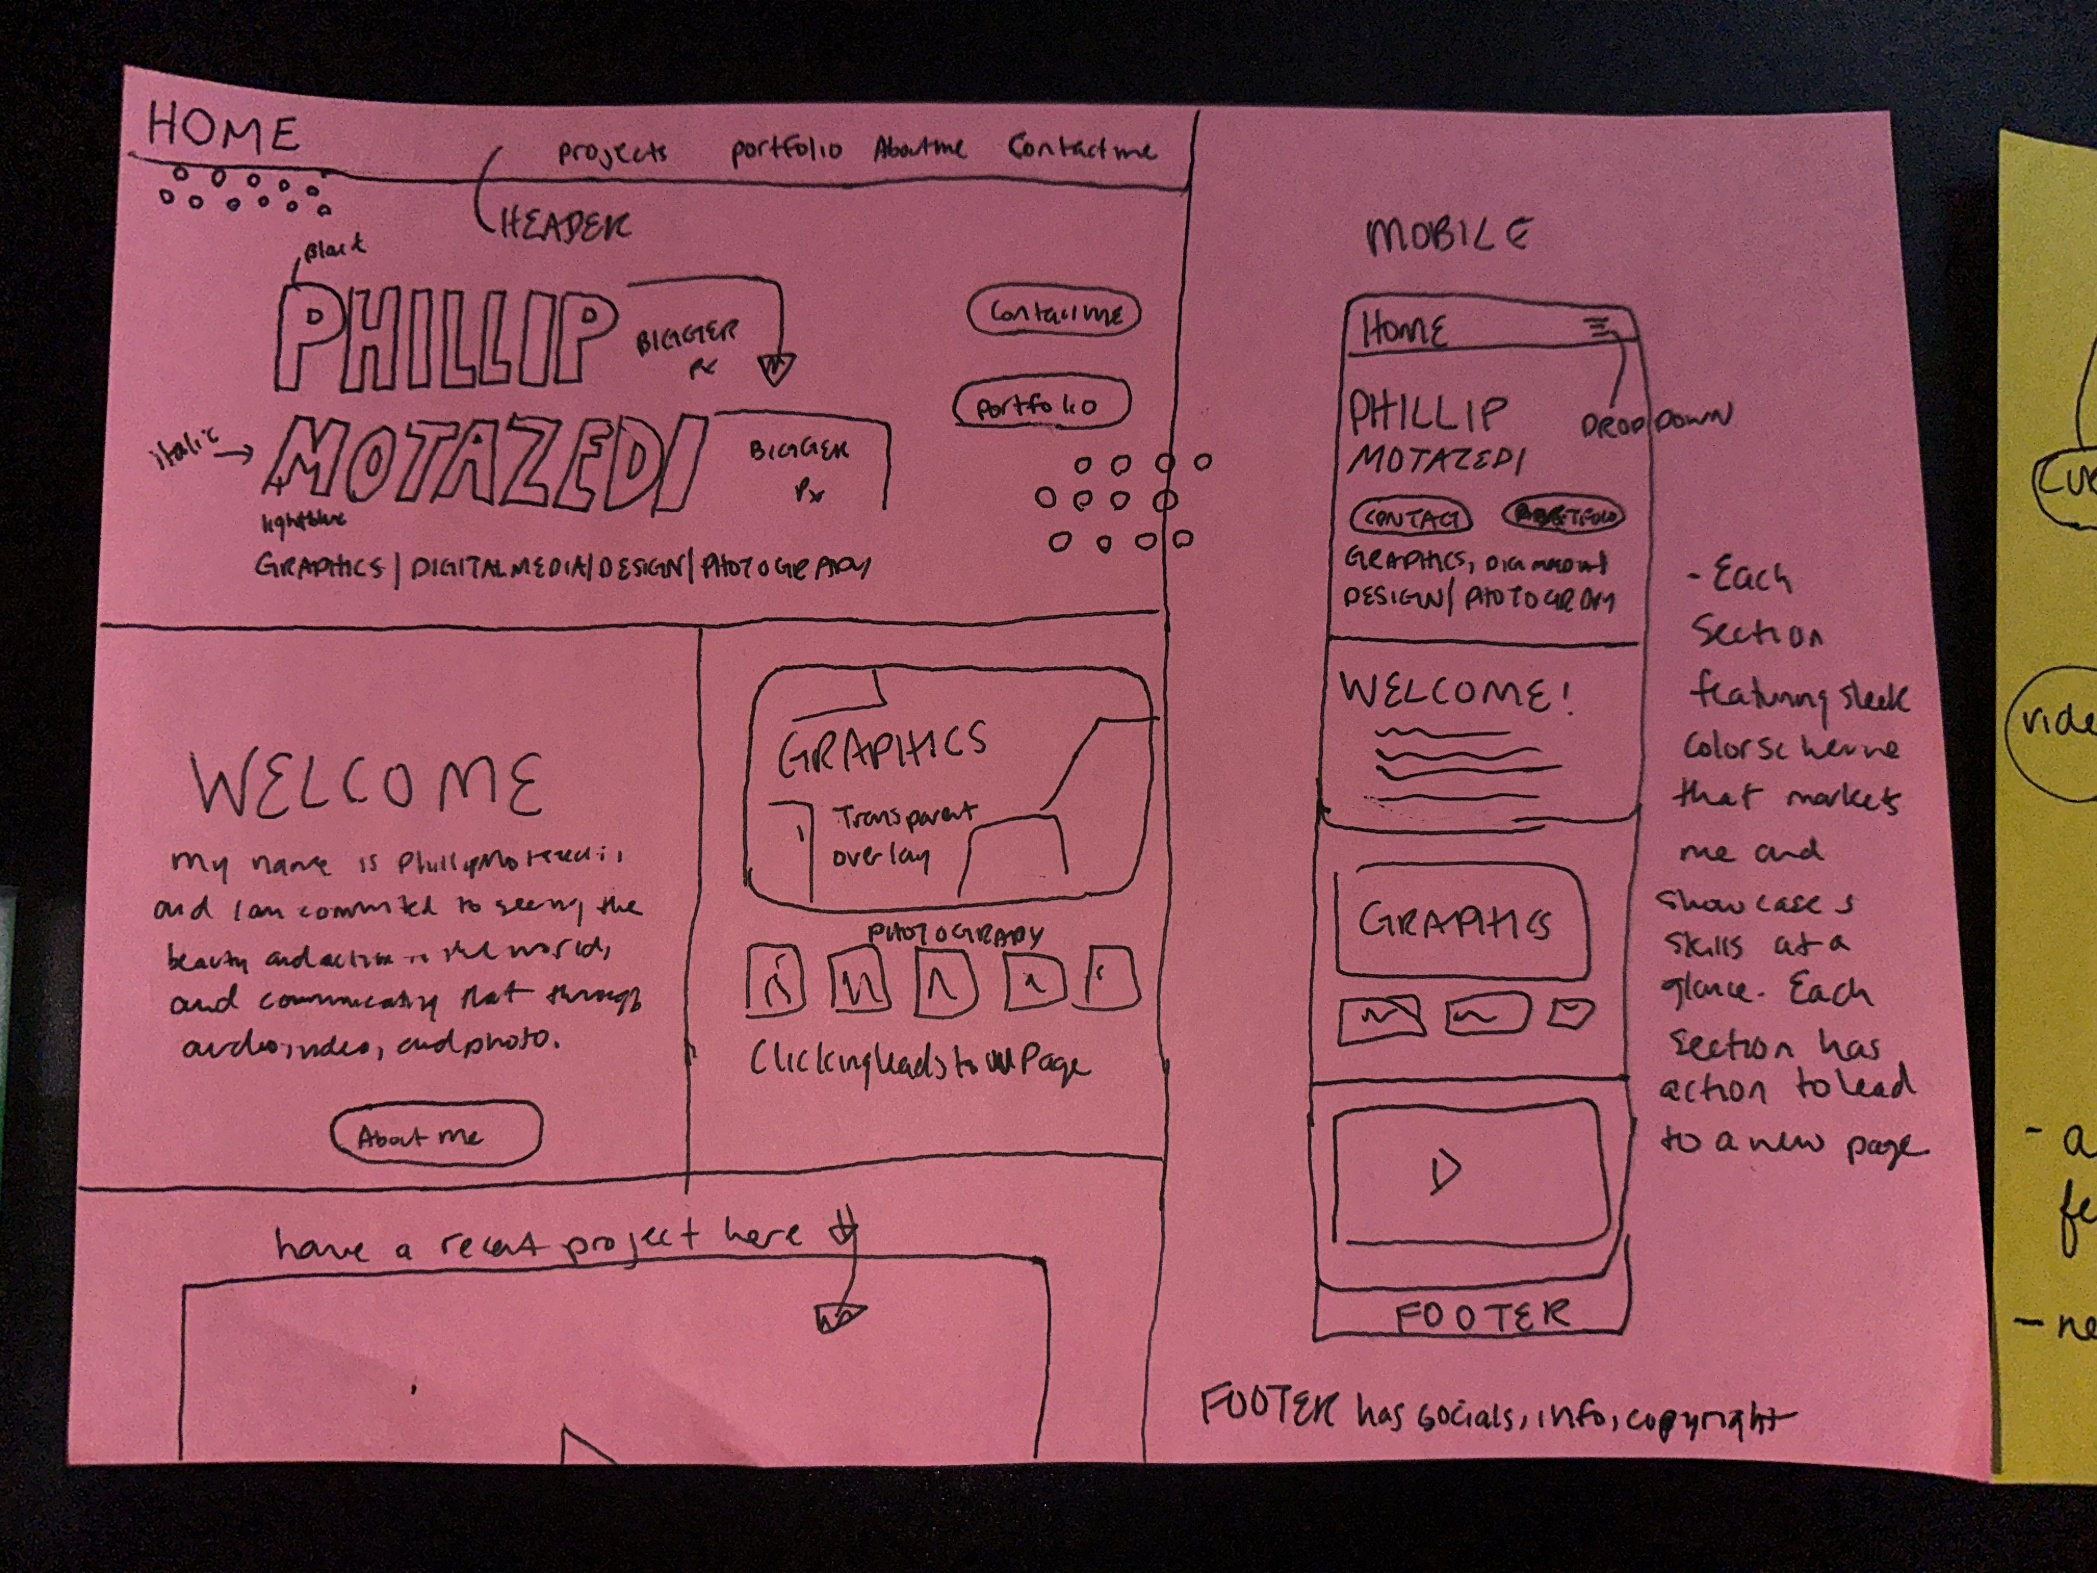 HOME
projects portfolio About me Contact me
HEADER
Black
PHILLIP
BIGGER
px
Contact me
italic
MOTAZEDI
BIGGER
Px
portfolio
lightblue
GRAPHICS | DIGITAL MEDIA | DESIGN | PHOTOGRAPHY
WELCOME
my name is Phillip Motazedi,
and I am committed to seeing the
beauty and action in the world,
and communicating that through
audio, video, and photo.
About me
GRAPHICS
Transparent
overlay
PHOTOGRAPHY
Clicking leads to Page
have a recent project here
MOBILE
HOME
DROPDOWN
PHILLIP
MOTAZEDI
CONTACT PORTFOLIO
GRAPHICS,
DESIGN / PHOTOGRAPHY
WELCOME!
GRAPHICS
FOOTER
- Each
Section
featuring sleek
color scheme
that markets
me and
showcases
skills at a
glance. Each
section has
action to lead
to a new page
FOOTER has socials, info, copyright
- a
fe
- ne